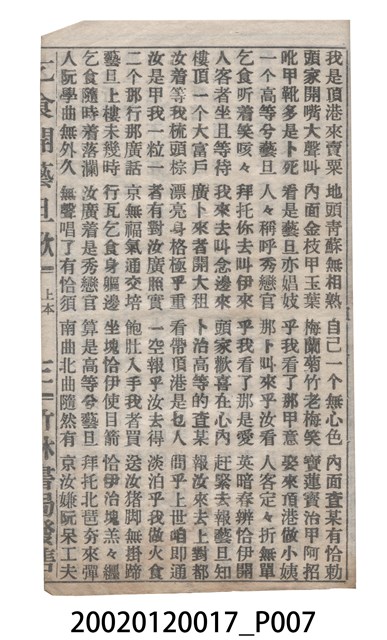 我是頂港來賣粟 地頭靑蘇無相熟 自己一个無心色 內面査某有恰勅
頭家開嘴大聲叫 內面金枝甲玉葉 梅蘭菊竹老梅笑 寶蓮賣治甲阿招
吪甲靴多是卜死 看是藝旦亦娼妓 乎我看了那甲意 娶來頂港做小姨
一个高等兮藝旦 人々稱呼秀戀官 那卜叫來乎汝看 人客定々折無單
乞食听着笑咳々 拜托你去叫伊來 乎我看了那是愛 英暗春辦恰伊開
入客者坐且等待 我來去叫念邊來 頭家歡喜在心內 赶緊去報藝旦知
樓頂一个大富戶 廣卜來者開大租 卜治高等的査某 報汝來去上對都
汝着等我梳頭棕 漂亮身格極乎重 看帶頂港是乜人 問乎上世咱即通
汝是甲我一粒一 者有對汝廣照實 一空報乎汝去得 淡泊乎我做火食
二个那行那廣話 京無福氣通交培 飽肚入手我者買 送汝猪脚無掛蹄
藝旦上樓未幾時 行瓦乞食身軀邊 坐塊恰伊使目箭 恰伊治塊羔々纏
乞食隨時着落瀾 汝廣着是秀戀官 算是高等兮藝旦 拜托北琶夯來彈
人阮學曲無外久 無聲唱了有恰須 南曲北曲隨然有 京汝嫌阮呆工夫
乞食開藝旦歌 上本 三 竹林書局發售
20020120017_P007